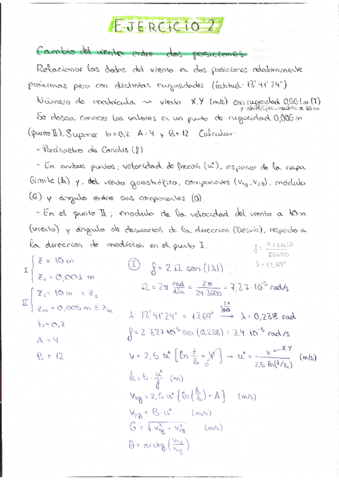 EJERCICIO 2
Cambio del viento entre dos posiciones
Relacionar los datos del viento en dos posiciones relativamente
próximas pero con distintas rugosidades (latitud: 13°41'24")
Número de matrícula → viento X.Y (m/s) con rugosidad 0,001 m (I)
y 10 m
Se desea conocer los valores en un punto de rugosidad 0,005 m
(punto II). Suponer b=0,2 A=4 y B=12 Calcular:
- Parámetro de Coriolis (f)
- En ambos puntos, velocidad de fricción (u*), espesor de la capa
límite (h) y, del viento geostrófico, componentes (Vxg, Vyg), módulo
(G) y ángulo entre sus componentes (θ).
- En el punto II, modulo de la velocidad del viento a 10 m
(viento) y ángulo de desviación de la dirección (Desvio), respecto a
la dirección de medición en el punto I.
I { z = 10 m
z₀ = 0,001 m
II { z₂ = 10 m = z₂
z₀₂ = 0,005 m
b = 0,2
A = 4
B = 12
I f = 2 Ω sen (|λ|)
Ω = 2π rad/día = 2π/(24·3600) = 7,27·10⁻⁵ rad/s
λ: 13°41'24" → 13,69° → λ = 0,238 rad
f = 2·7,27·10⁻⁵ sen (0,238) = 3,4·10⁻⁵ rad/s
h = b · u*/f (m)
(m/s)
Vyg = B · u* (m/s)
G = √(Vxg² + Vyg²) (m/s)